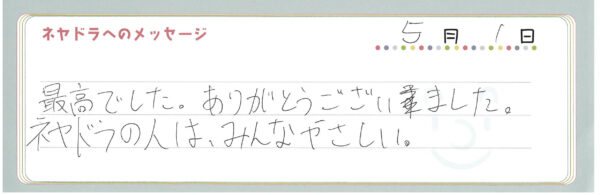 ネヤドラへのメッセージ
5月1日
最高でした。ありがとうございました。
ネヤドラの人は、みんなやさしい。